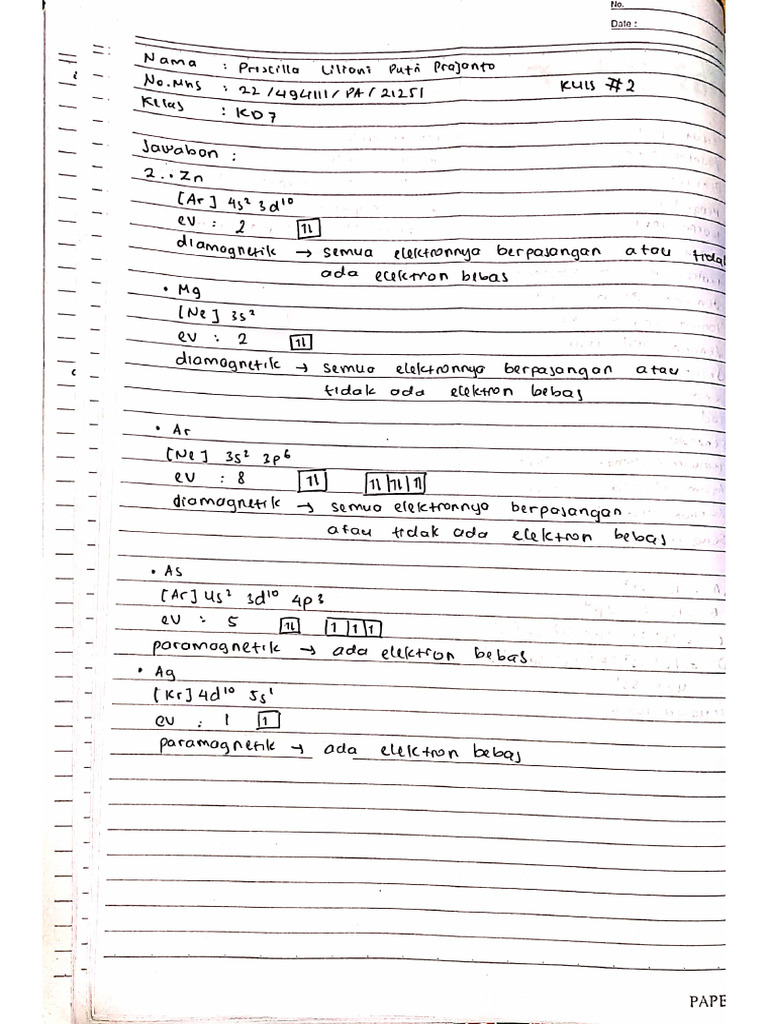 No.
Date :
Nama : Priscilla Lilioni Putri Prajanto
No.Mhs : 22/494111/PA/21251 KUIS #2
Kelas : KD7
Jawaban :
2. • Zn
[Ar] 4s² 3d¹⁰
ev : 2 ⇅
diamagnetik → semua elektronnya berpasangan atau tidak
ada elektron bebas
• Mg
[Ne] 3s²
ev : 2 ⇅
diamagnetik → semua elektronnya berpasangan atau
tidak ada elektron bebas
• Ar
[Ne] 3s² 3p⁶
ev : 8 ⇅ ⇅ ⇅ ⇅
diamagnetik → semua elektronnya berpasangan
atau tidak ada elektron bebas
• As
[Ar] 4s² 3d¹⁰ 4p3
ev : 5 ⇅ 1 1 1
paramagnetik → ada elektron bebas
• Ag
[Kr] 4d¹⁰ 5s¹
ev : 1 1
paramagnetik → ada elektron bebas
PAPE